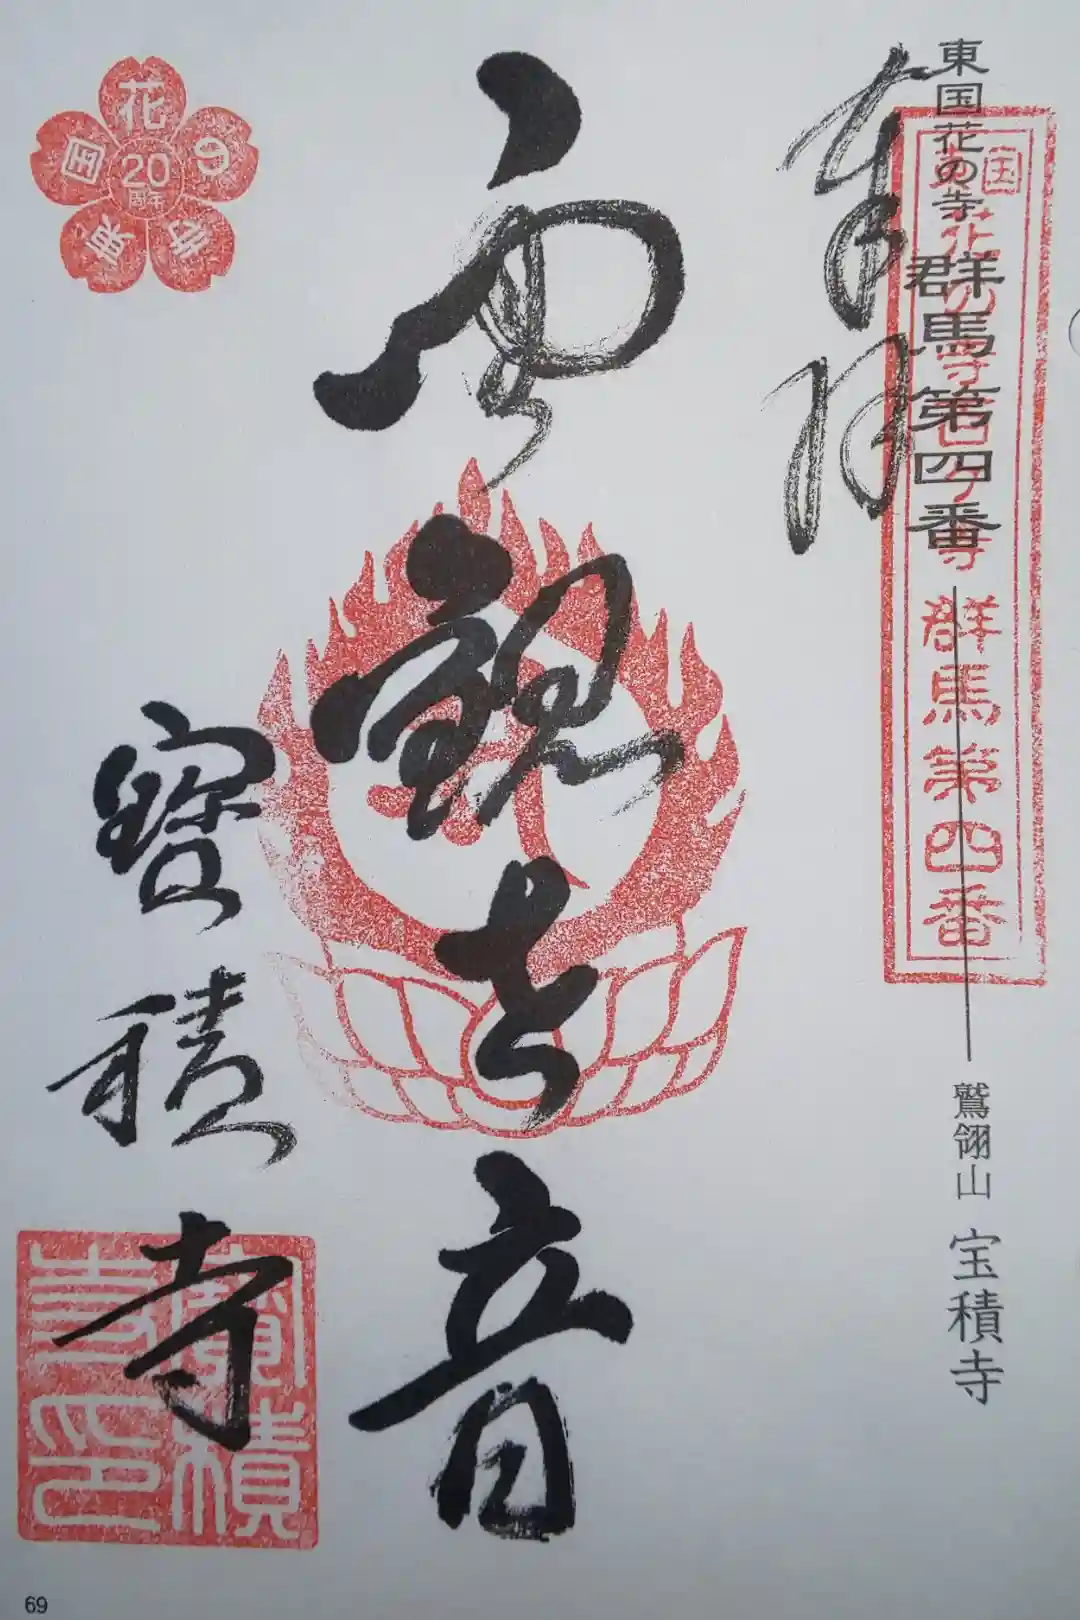 東国花の寺 群馬第四番 ― 鷲翎山 宝積寺
東国花の寺百ヶ寺 群馬第四番
奉拝
觀世音
寶積寺
東国花の寺
20
周年
寶積
寺印
69